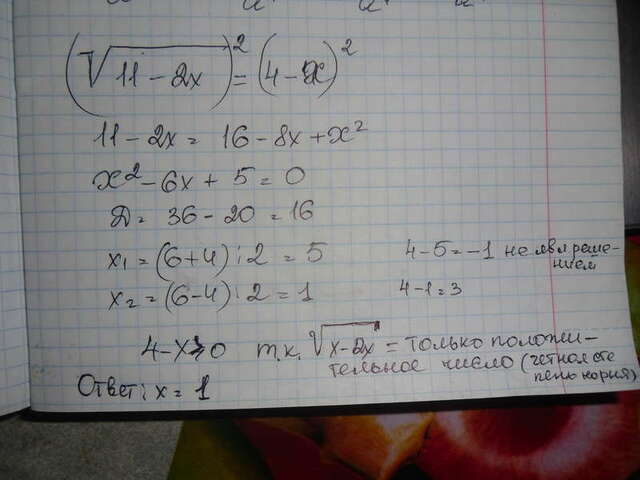 (√(11 - 2x))² = (4 - x)²
11 - 2x = 16 - 8x + x²
x² - 6x + 5 = 0
Д = 36 - 20 = 16
x₁ = (6+4) : 2 = 5 4 - 5 = -1 не явл реше-
нием
x₂ = (6-4) : 2 = 1 4 - 1 = 3
4 - x ≥ 0 т.к. √(x - 2x) = только положи-
тельное число (четная сте
пень корня)
Ответ: x = 1